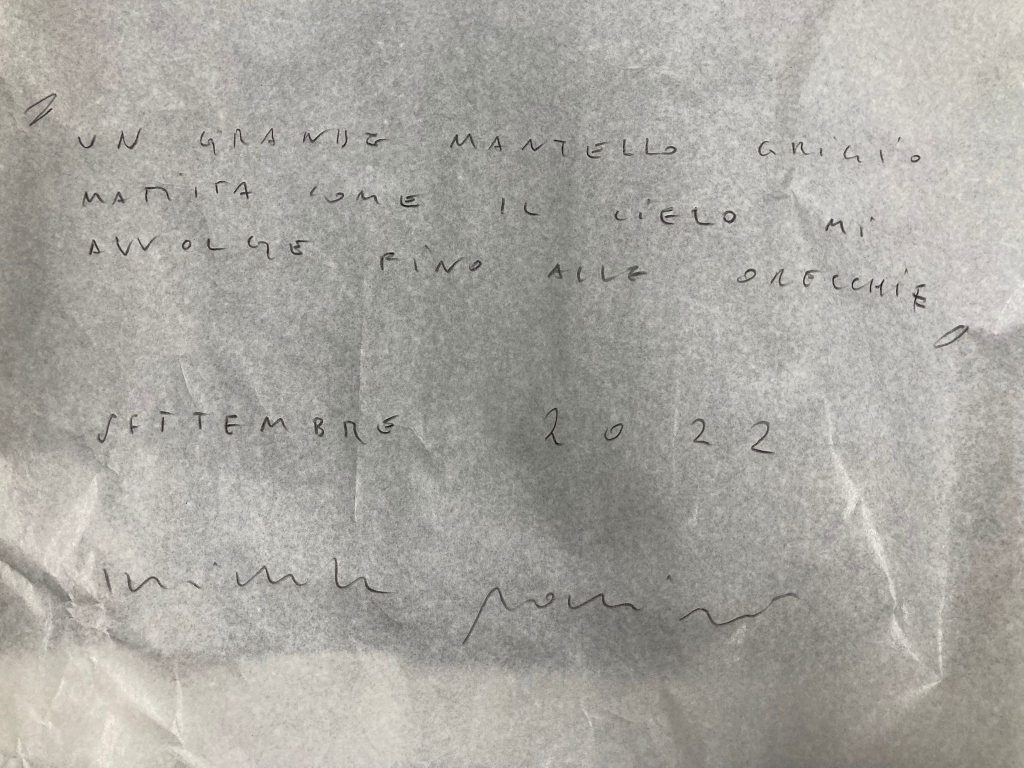 "UN GRANDE MANTELLO GRIGIO
MATITA COME IL CIELO MI
AVVOLGE FINO ALLE ORECCHIE"
SETTEMBRE 2022